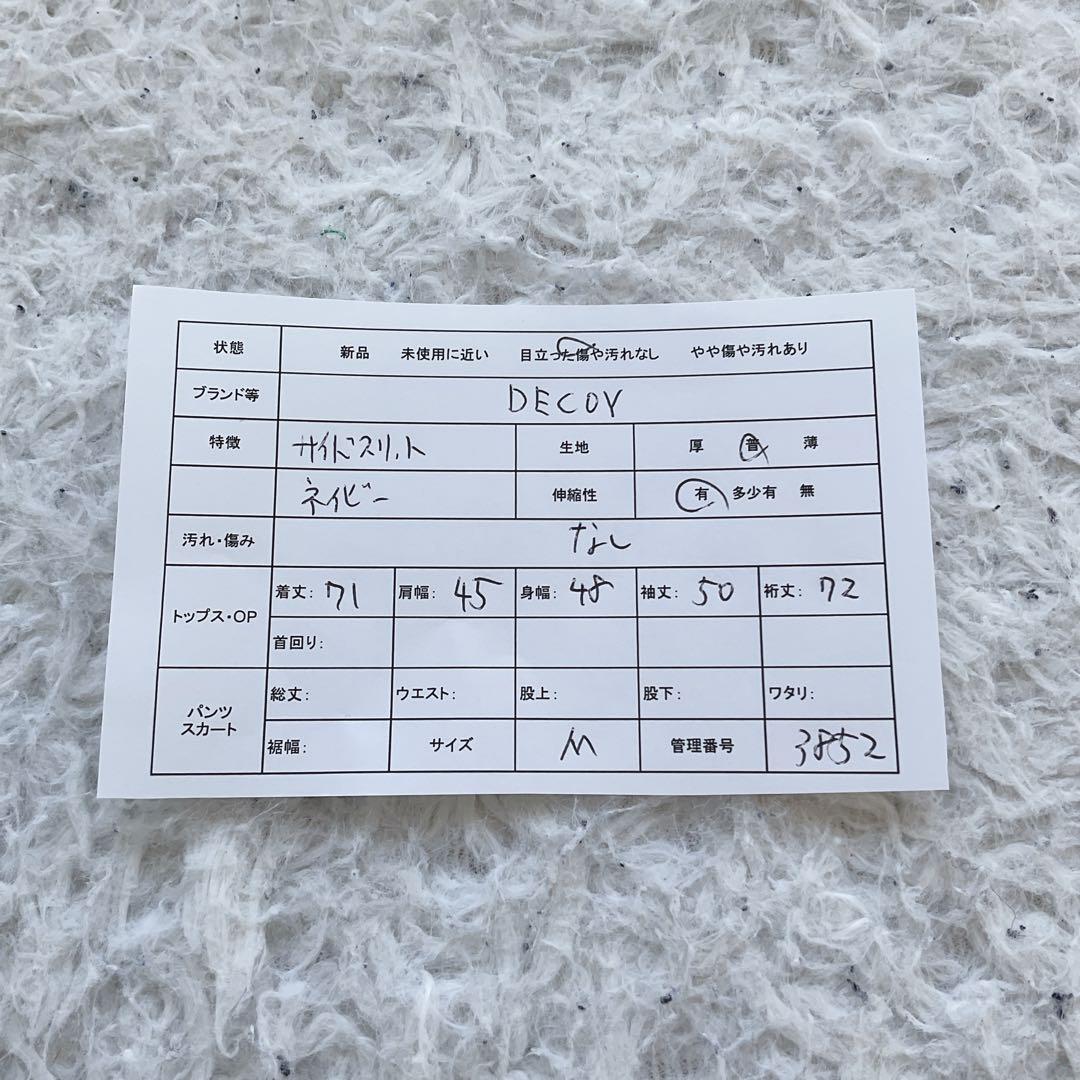 状態 新品 未使用に近い 目立った傷や汚れなし やや傷や汚れあり
ブランド等 DECOY
特徴 サイドスリット 生地 厚 普 薄
ネイビー 伸縮性 有 多少有 無
汚れ・傷み なし
トップス・OP 着丈: 71 肩幅: 45 身幅: 48 袖丈: 50 裄丈: 72
首回り:
パンツ スカート 総丈: ウエスト: 股上: 股下: ワタリ:
裾幅: サイズ M 管理番号 3852